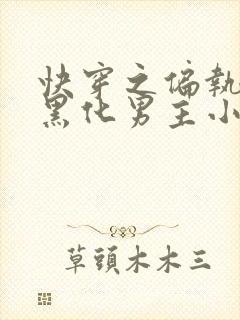 快穿之偏執
黑化男主小
草頭木木三